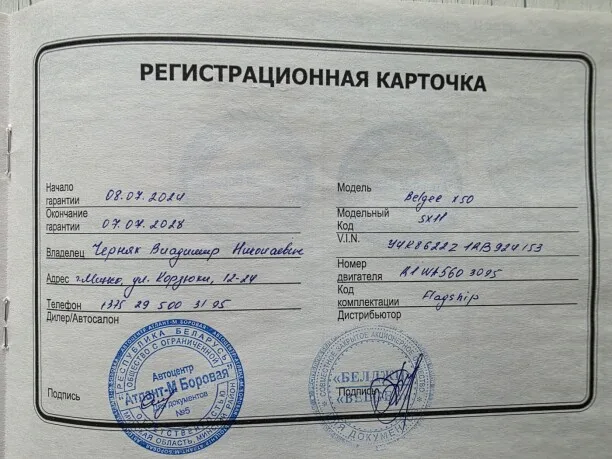 РЕГИСТРАЦИОННАЯ КАРТОЧКА
Начало гарантии 08.07.2024
Окончание гарантии 07.07.2028
Владелец Черняк Владимир Николаевич
Адрес г.Минск, ул. Корзюки, 12-24
Телефон +375 29 500 31 95
Дилер/Автосалон
Подпись
Модель Belgee X50
Модельный Код SX11
V.I.N.
Номер двигателя
Код комплектации Flagship
Дистрибьютор
Подпись
РЕСПУБЛИКА БЕЛАРУСЬ
ОБЩЕСТВО С ОГРАНИЧЕННОЙ ОТВЕТСТВЕННОСТЬЮ
Автоцентр
Атлант-М Боровая
документов
№5
МИНСКАЯ ОБЛАСТЬ, МИНСКИЙ РАЙОН
«БЕЛДЖИ»